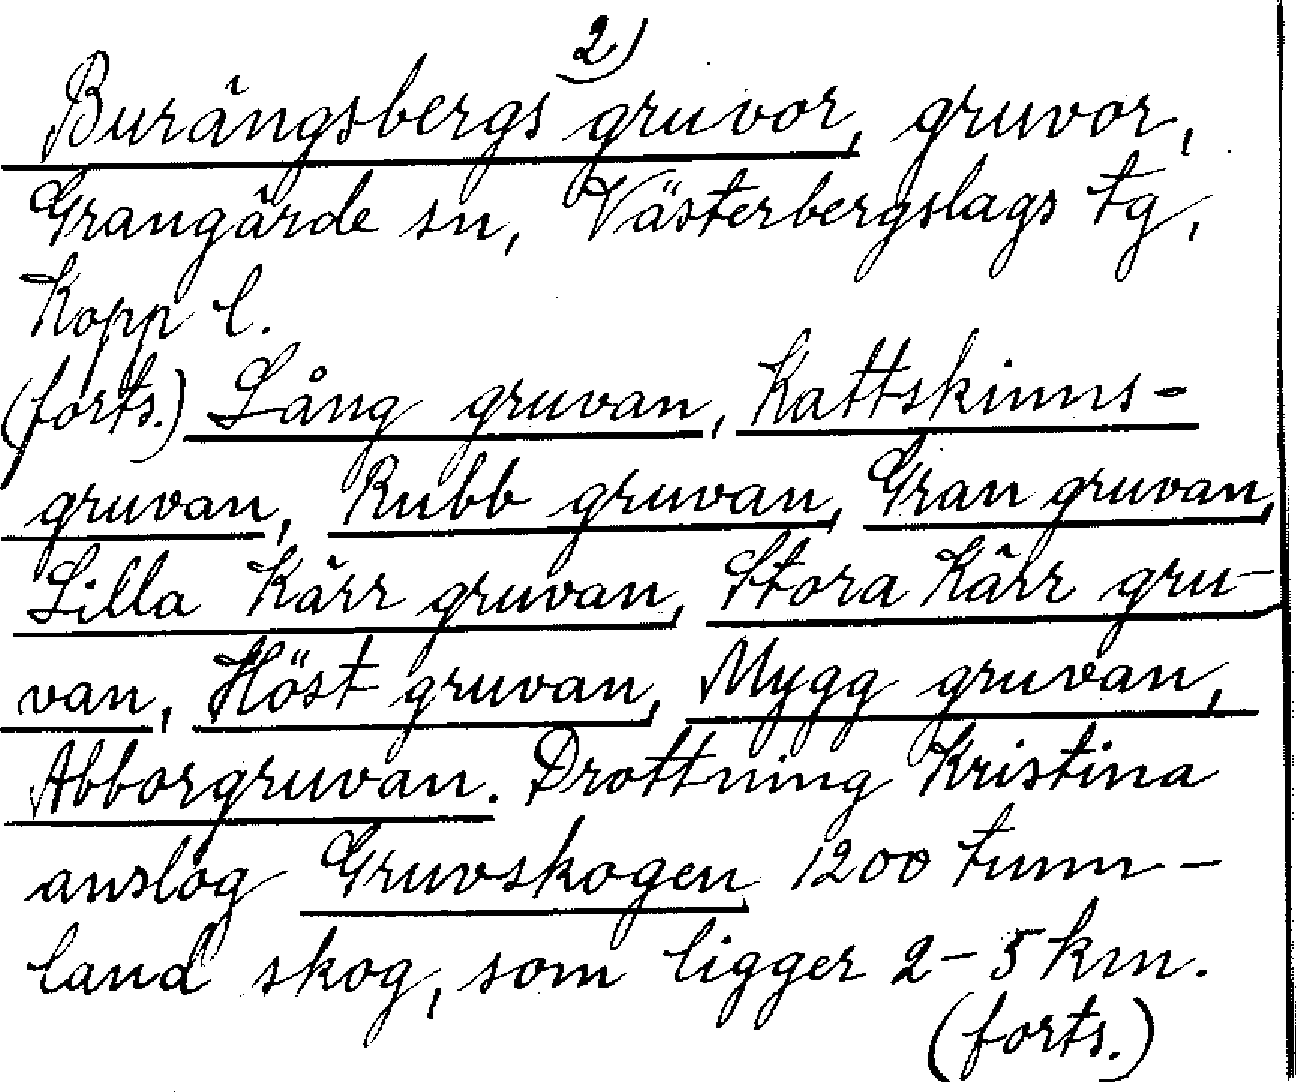 2)
Burängsbergs gruvor, gruvor,
Grangärde sn, Västerbergslags tg,
Kopp l.
(forts.) Lång gruvan, Kattskinns-
gruvan, Rubb gruvan, Gran gruvan,
Lilla Kärr gruvan, Stora Kärr gru-
van, Höst gruvan, Mygg gruvan,
Abborgruvan. Drottning Kristina
anslog Gruvskogen 1200 tunn-
land skog, som ligger 2-5 km.
(forts.)